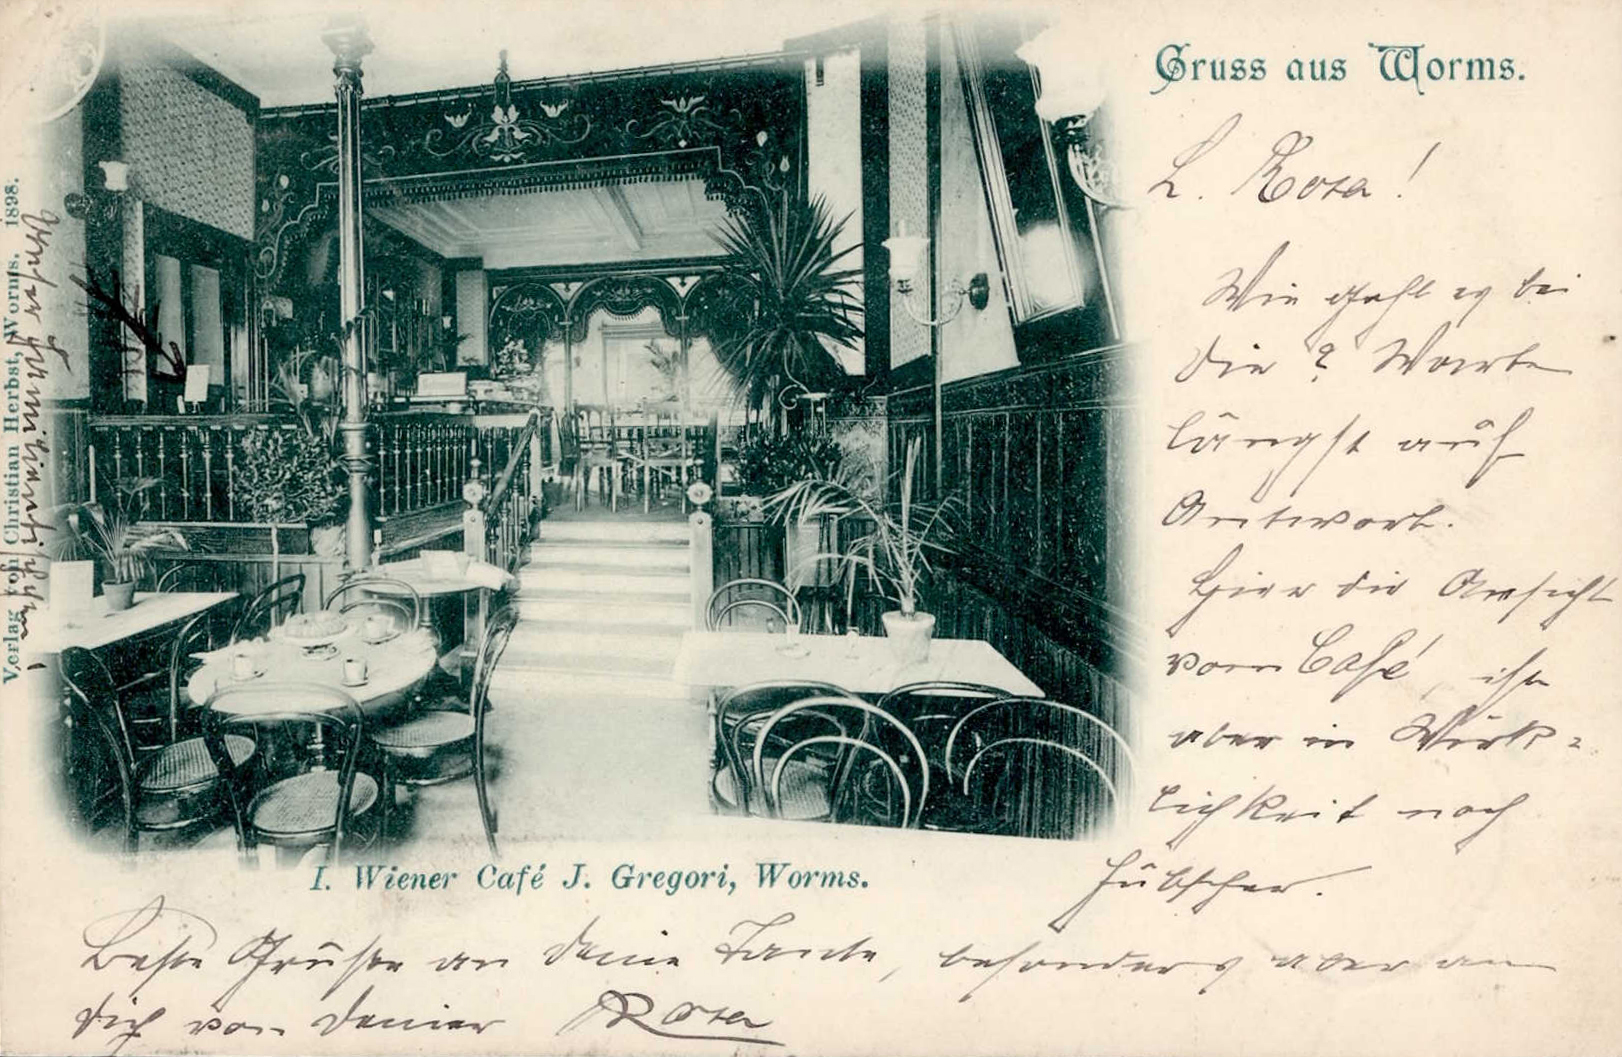 Gruss aus Worms.
L. Rosa!
Wie geht es bei
Dir? Warte
längst auf
Antwort.
Hier die Ansicht
vom Café, ist
aber in Wirk=
lichkeit noch
hübscher.
I. Wiener Café J. Gregori, Worms.
Beste Grüße an Deine Tante, besonders aber an
Dich von Deiner Rosa
Verlag von Christian Herbst, Worms. 1898.